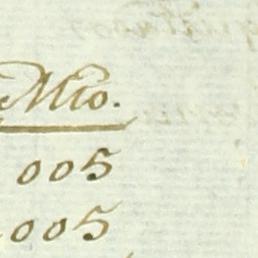 Mio.
005
005